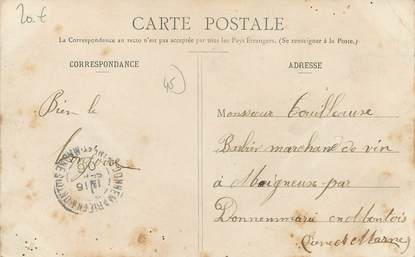 20.t
CARTE POSTALE
La Correspondance au recto n'est pas acceptée par tous les Pays Étrangers. (Se renseigner à la Poste.)
CORRESPONDANCE
ADRESSE
45
Bien le
bonjour
Monsieur
marchand de vin
à Maigneux par
Donnemarie en Montois
Seine et Marne